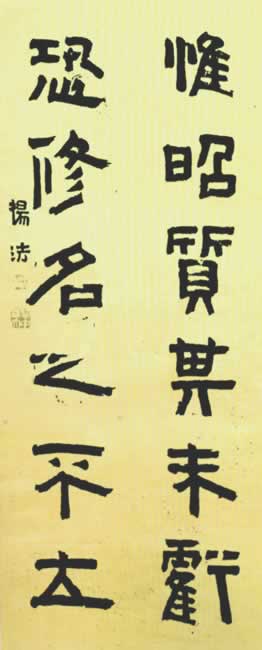 惟昭質其未虧
恐修名之不立
楊法